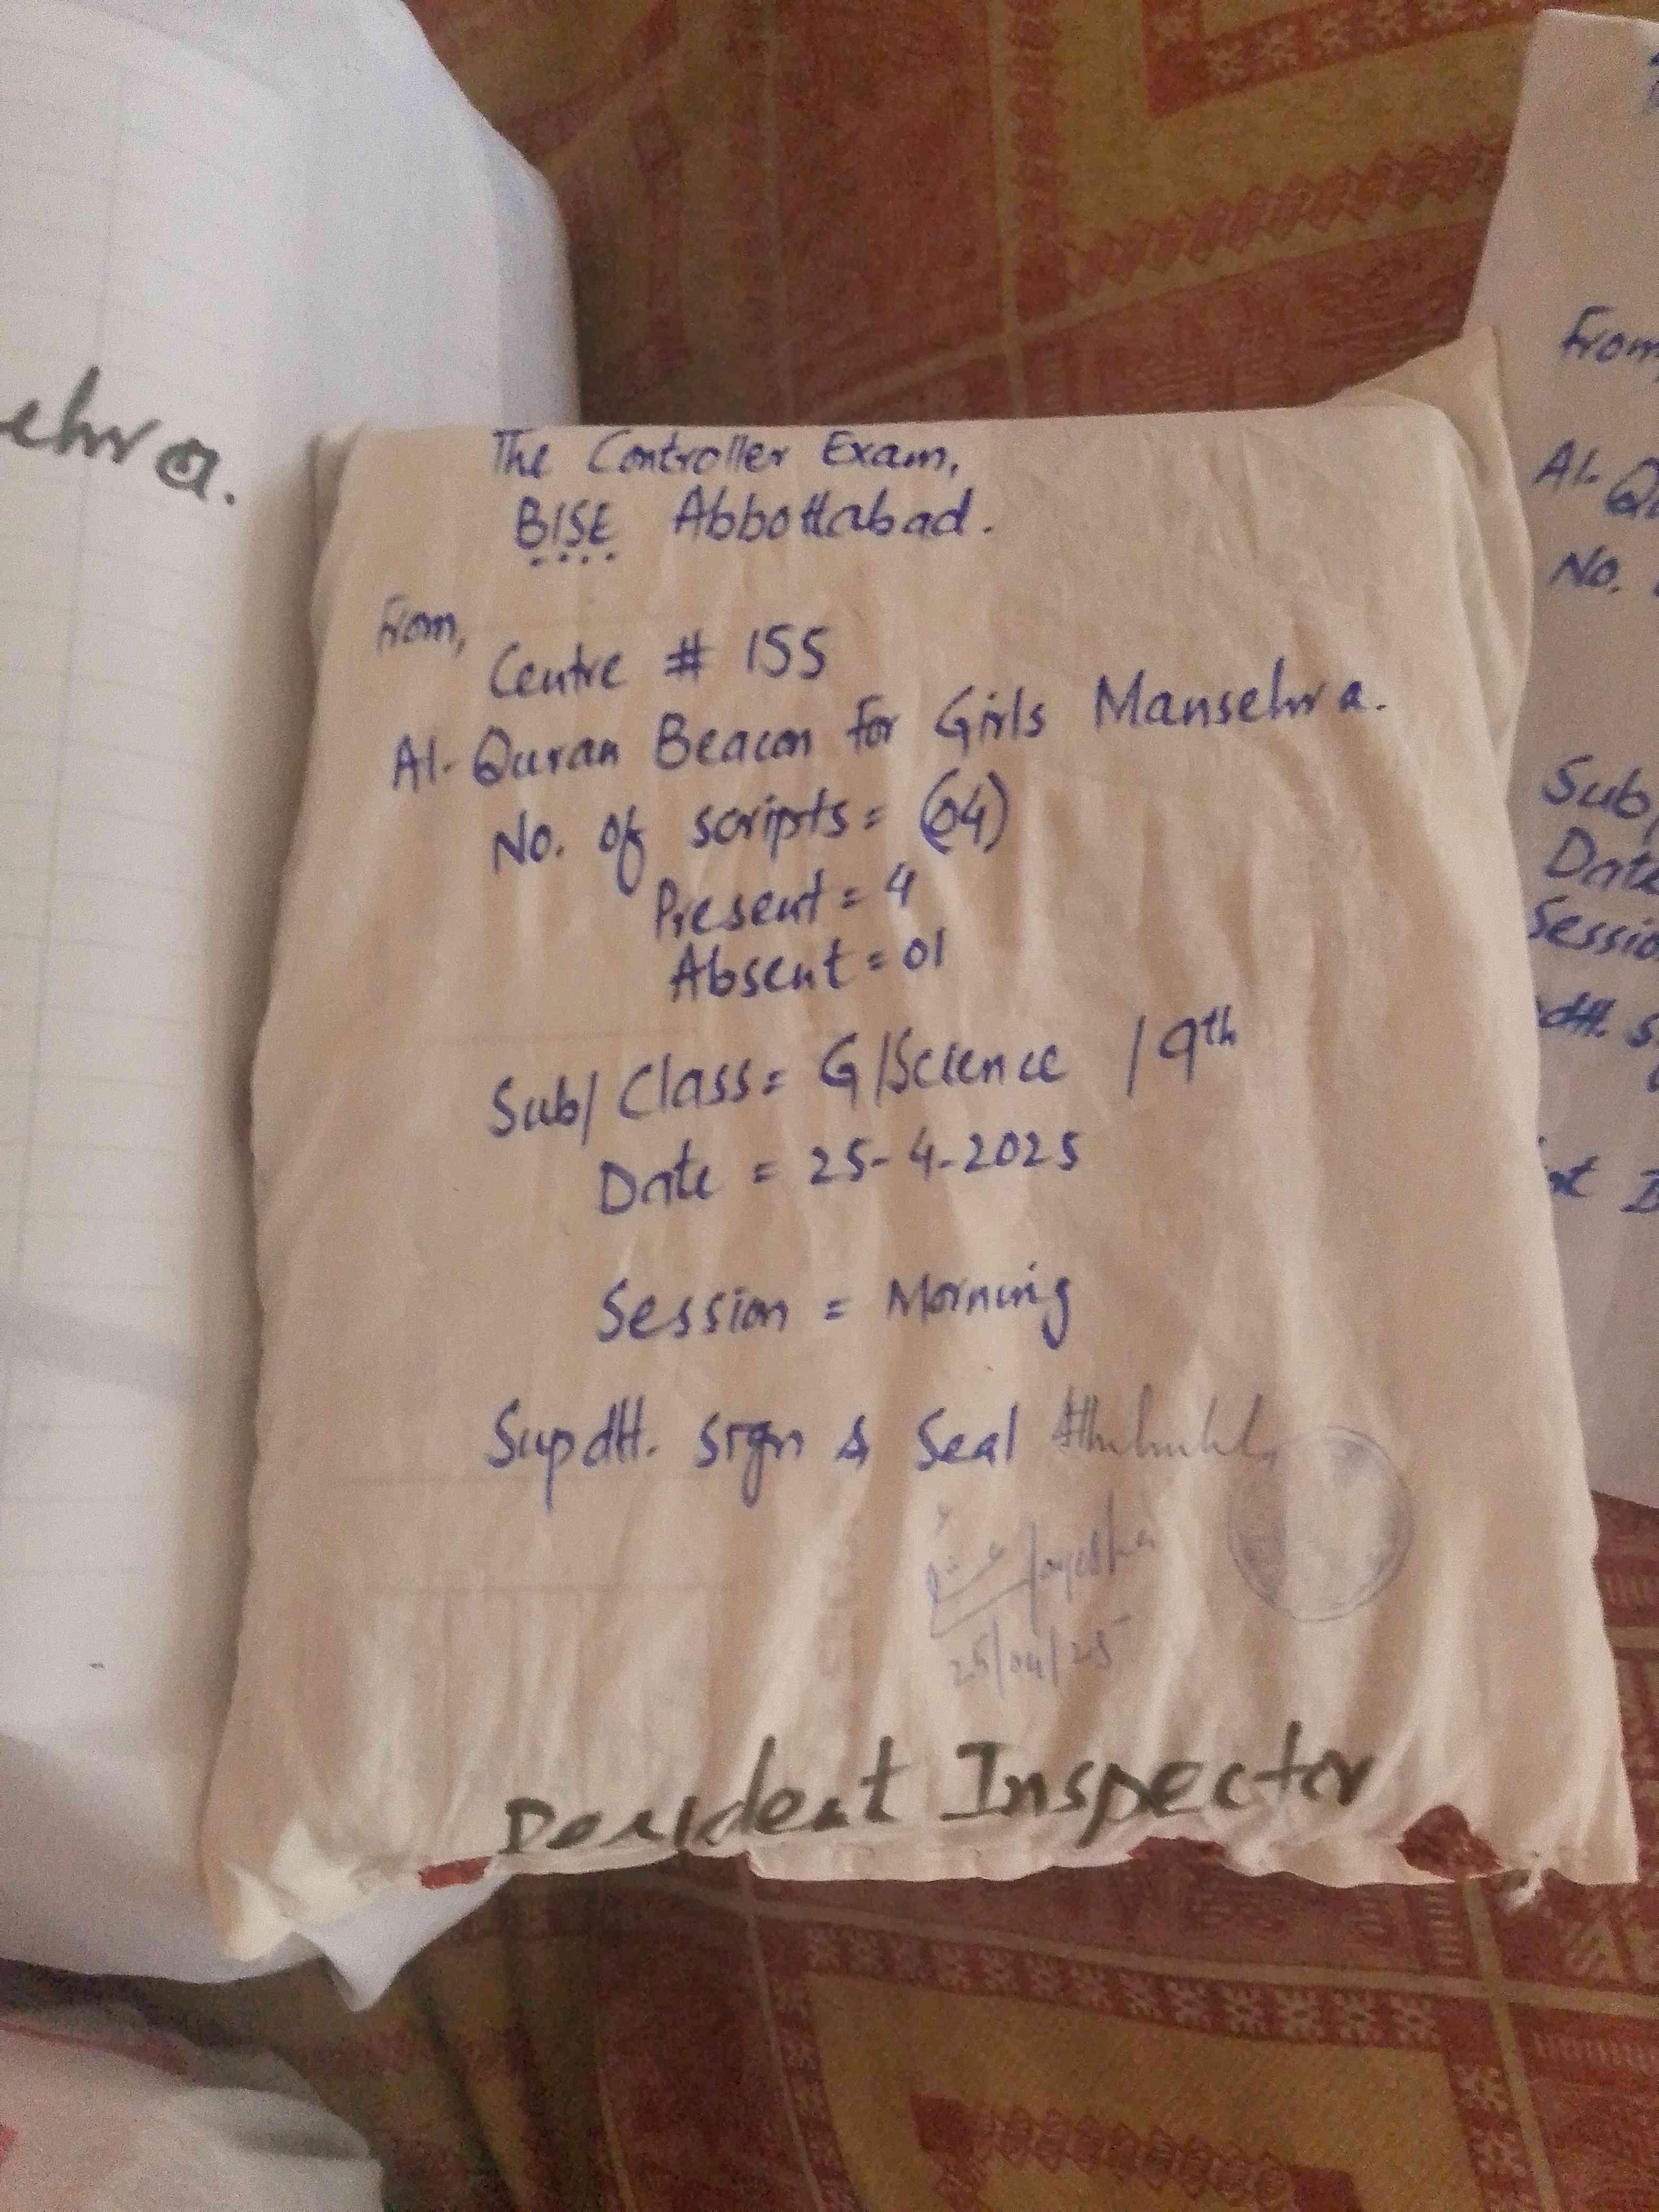 ehra.
The Controller Exam,
BISE Abbottabad.
From,
Centre # 155
Al-Quran Beacon For Girls Mansehra.
No. of scripts = (04)
Present = 4
Absent = 01
Sub/ Class = G/Science / 9th
Date = 25-4-2025
Session = Morning
Supdtt. sign & Seal
25/04/25
Inspector
From
Al-Qu
No.
Sub/
Date
Sessio
dtt. s